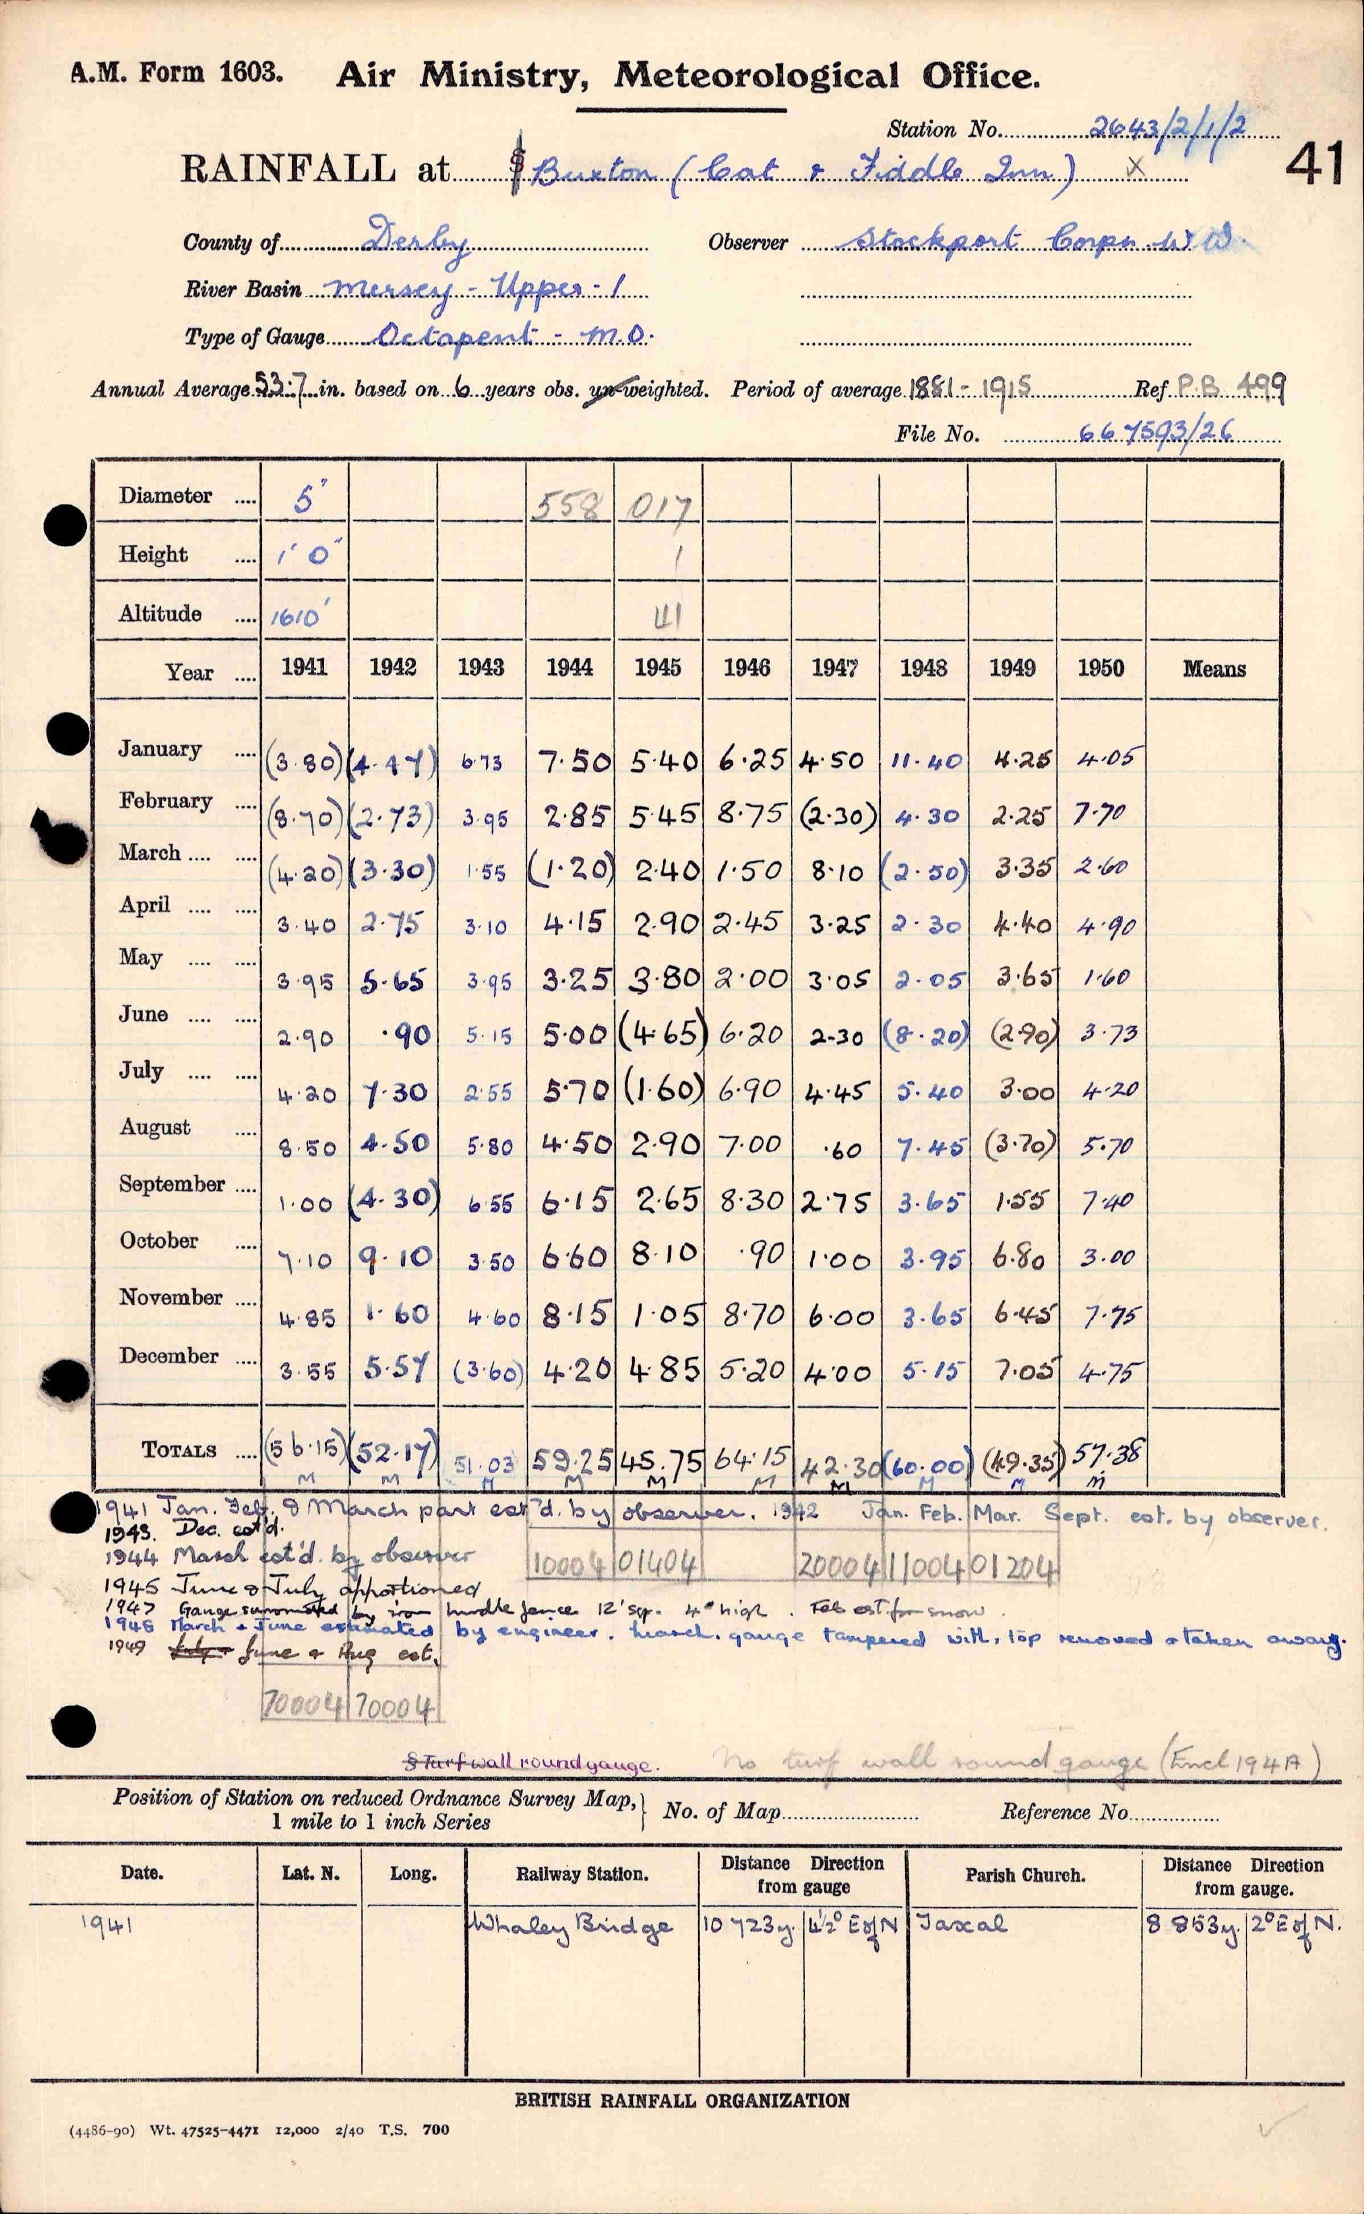 A.M. Form 1603. Air Ministry, Meteorological Office.
Station No. 2643/2/1/2
41
RAINFALL at § Buxton (Cat & Fiddle Inn) X
County of Derby Observer Stockport Corpn W W.
River Basin Mersey - Upper - 1
Type of Gauge Octapent - M.O.
Annual Average 53.7 in. based on 6 years obs. un-weighted. Period of average 1881-1915 Ref P.B 499
File No. 667593/26
Diameter .... 5" 558 017
Height .... 1' 0" 1
Altitude .... 1610' 41
Year .... 1941 1942 1943 1944 1945 1946 1947 1948 1949 1950 Means
January .... (3.80) (4.47) 6.73 7.50 5.40 6.25 4.50 11.40 4.25 4.05
February .... (8.70) (2.73) 3.95 2.85 5.45 8.75 (2.30) 4.30 2.25 7.70
March .... .... (4.20) (3.30) 1.55 (1.20) 2.40 1.50 8.10 (2.50) 3.35 2.60
April .... .... 3.40 2.75 3.10 4.15 2.90 2.45 3.25 2.30 4.40 4.90
May .... .... 3.95 5.65 3.95 3.25 3.80 2.00 3.05 2.05 3.65 1.60
June .... .... 2.90 .90 5.15 5.00 (4.65) 6.20 2.30 (8.20) (2.90) 3.73
July .... .... 4.20 7.30 2.55 5.70 (1.60) 6.90 4.45 5.40 3.00 4.20
August .... 8.50 4.50 5.80 4.50 2.90 7.00 .60 7.45 (3.70) 5.70
September .... 1.00 (4.30) 6.55 6.15 2.65 8.30 2.75 3.65 1.55 7.40
October .... 7.10 9.10 3.50 6.60 8.10 .90 1.00 3.95 6.80 3.00
November .... 4.85 1.60 4.60 8.15 1.05 8.70 6.00 3.65 6.45 7.75
December .... 3.55 5.57 (3.60) 4.20 4.85 5.20 4.00 5.15 7.05 4.75
TOTALS .... (56.15) (52.17) 51.03 59.25 45.75 64.15 42.30 (60.00) (49.35) 57.38
M M M M M M M M M M
1941 Jan. Feb. & March part est'd. by observer. 1942 Jan. Feb. Mar. Sept. est. by observer.
1943. Dec. est'd.
1944 March est'd. by observer 10004 01404 20004 11004 01204
1945 June & July apportioned
1947 Gauge surrounded by iron hurdle fence 12' sq. 4' high. Feb est. for snow.
1948 March & June estimated by engineer. March, gauge tampered with, top removed & taken away.
1949 June & Aug est.
70004 70004
§ Turf wall round gauge. No turf wall round gauge (Encl 194A)
Position of Station on reduced Ordnance Survey Map, } No. of Map Reference No.
1 mile to 1 inch Series
Date. Lat. N. Long. Railway Station. Distance Direction from gauge Parish Church. Distance Direction from gauge.
1941 Whaley Bridge 10 723y. 4½° E of N Taxal 8 853y. 2° E of N.
BRITISH RAINFALL ORGANIZATION
(4486-90) Wt. 47525-4471 12,000 2/40 T.S. 700